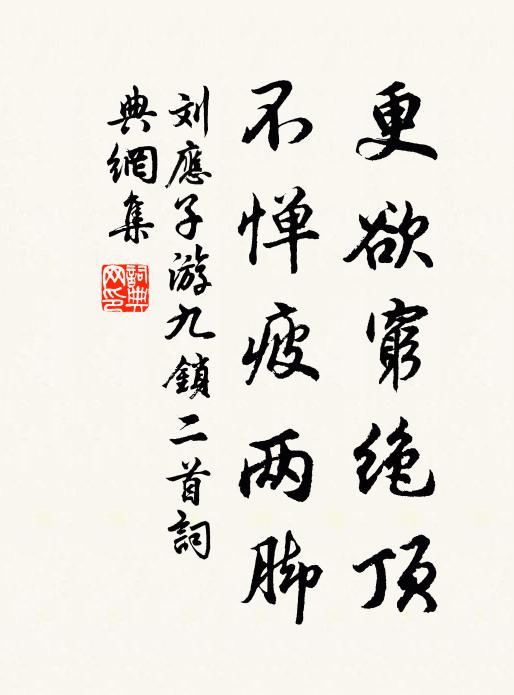 更欲窮绝頂
不惮疲两脚
刘應子游九鎖二首詞
典網集
詞典网印